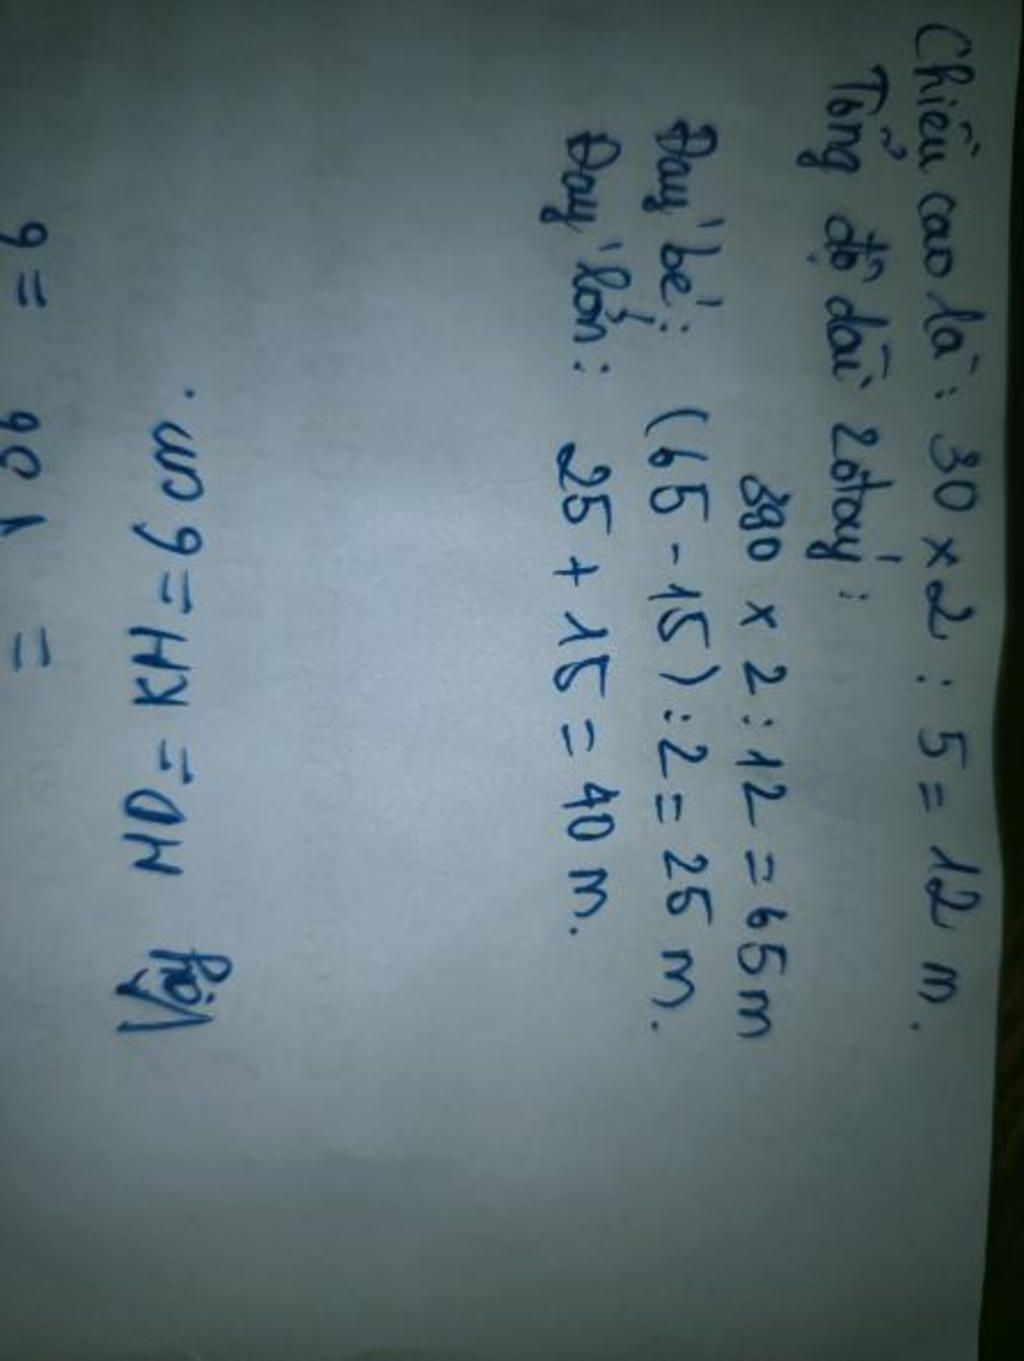 Chiều cao là: 30 x 2 : 5 = 12 m.
Tổng độ dài 2 đáy:
390 x 2 : 12 = 65 m
Đáy bé: (65 - 15) : 2 = 25 m.
Đáy lớn: 25 + 15 = 40 m.
Vậy HD = KH = 6 cm.